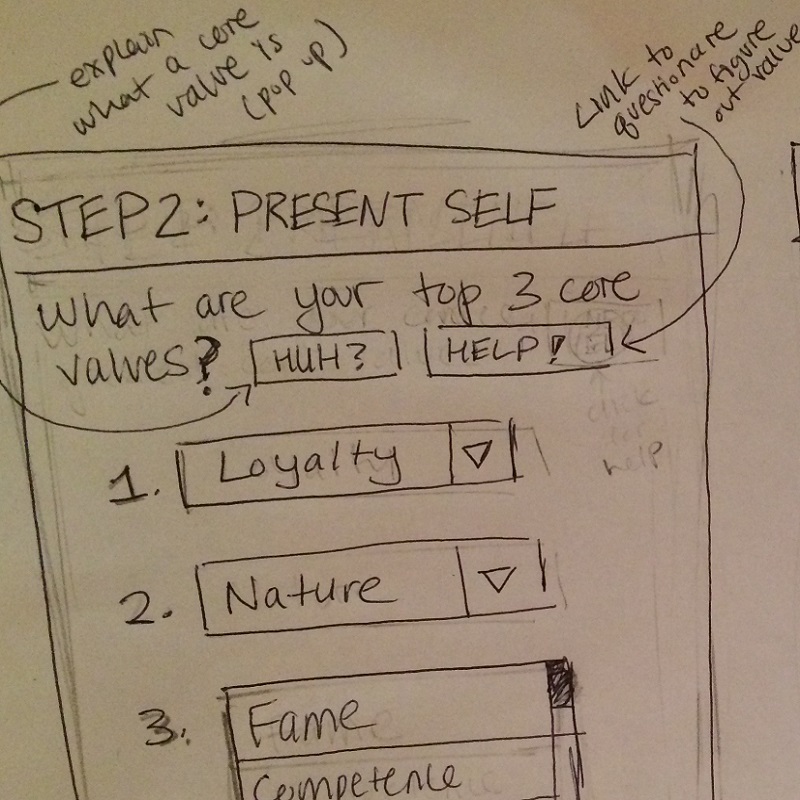 explain
what a core
value is
(pop up)
Link to
questionare
to figure
out value
STEP 2: PRESENT SELF
What are your top 3 core
values? HUH? HELP!
click
for
help
1. Loyalty
2. Nature
3. Fame
Competence